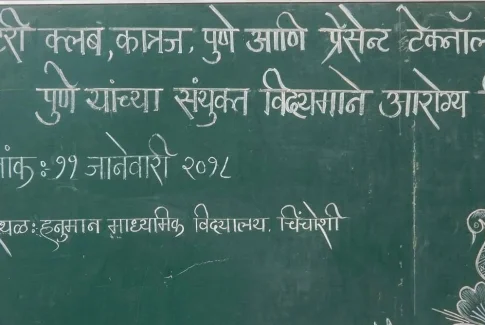 री क्लब, कात्रज, पुणे आणि प्रेसेन्ट टेक्नॉल
पुणे यांच्या संयुक्त विद्यमाने आरोग्य
नांक : ११ जानेवारी २०१८
थळ : हनुमान माध्यमिक विद्यालय. चिंचोशी